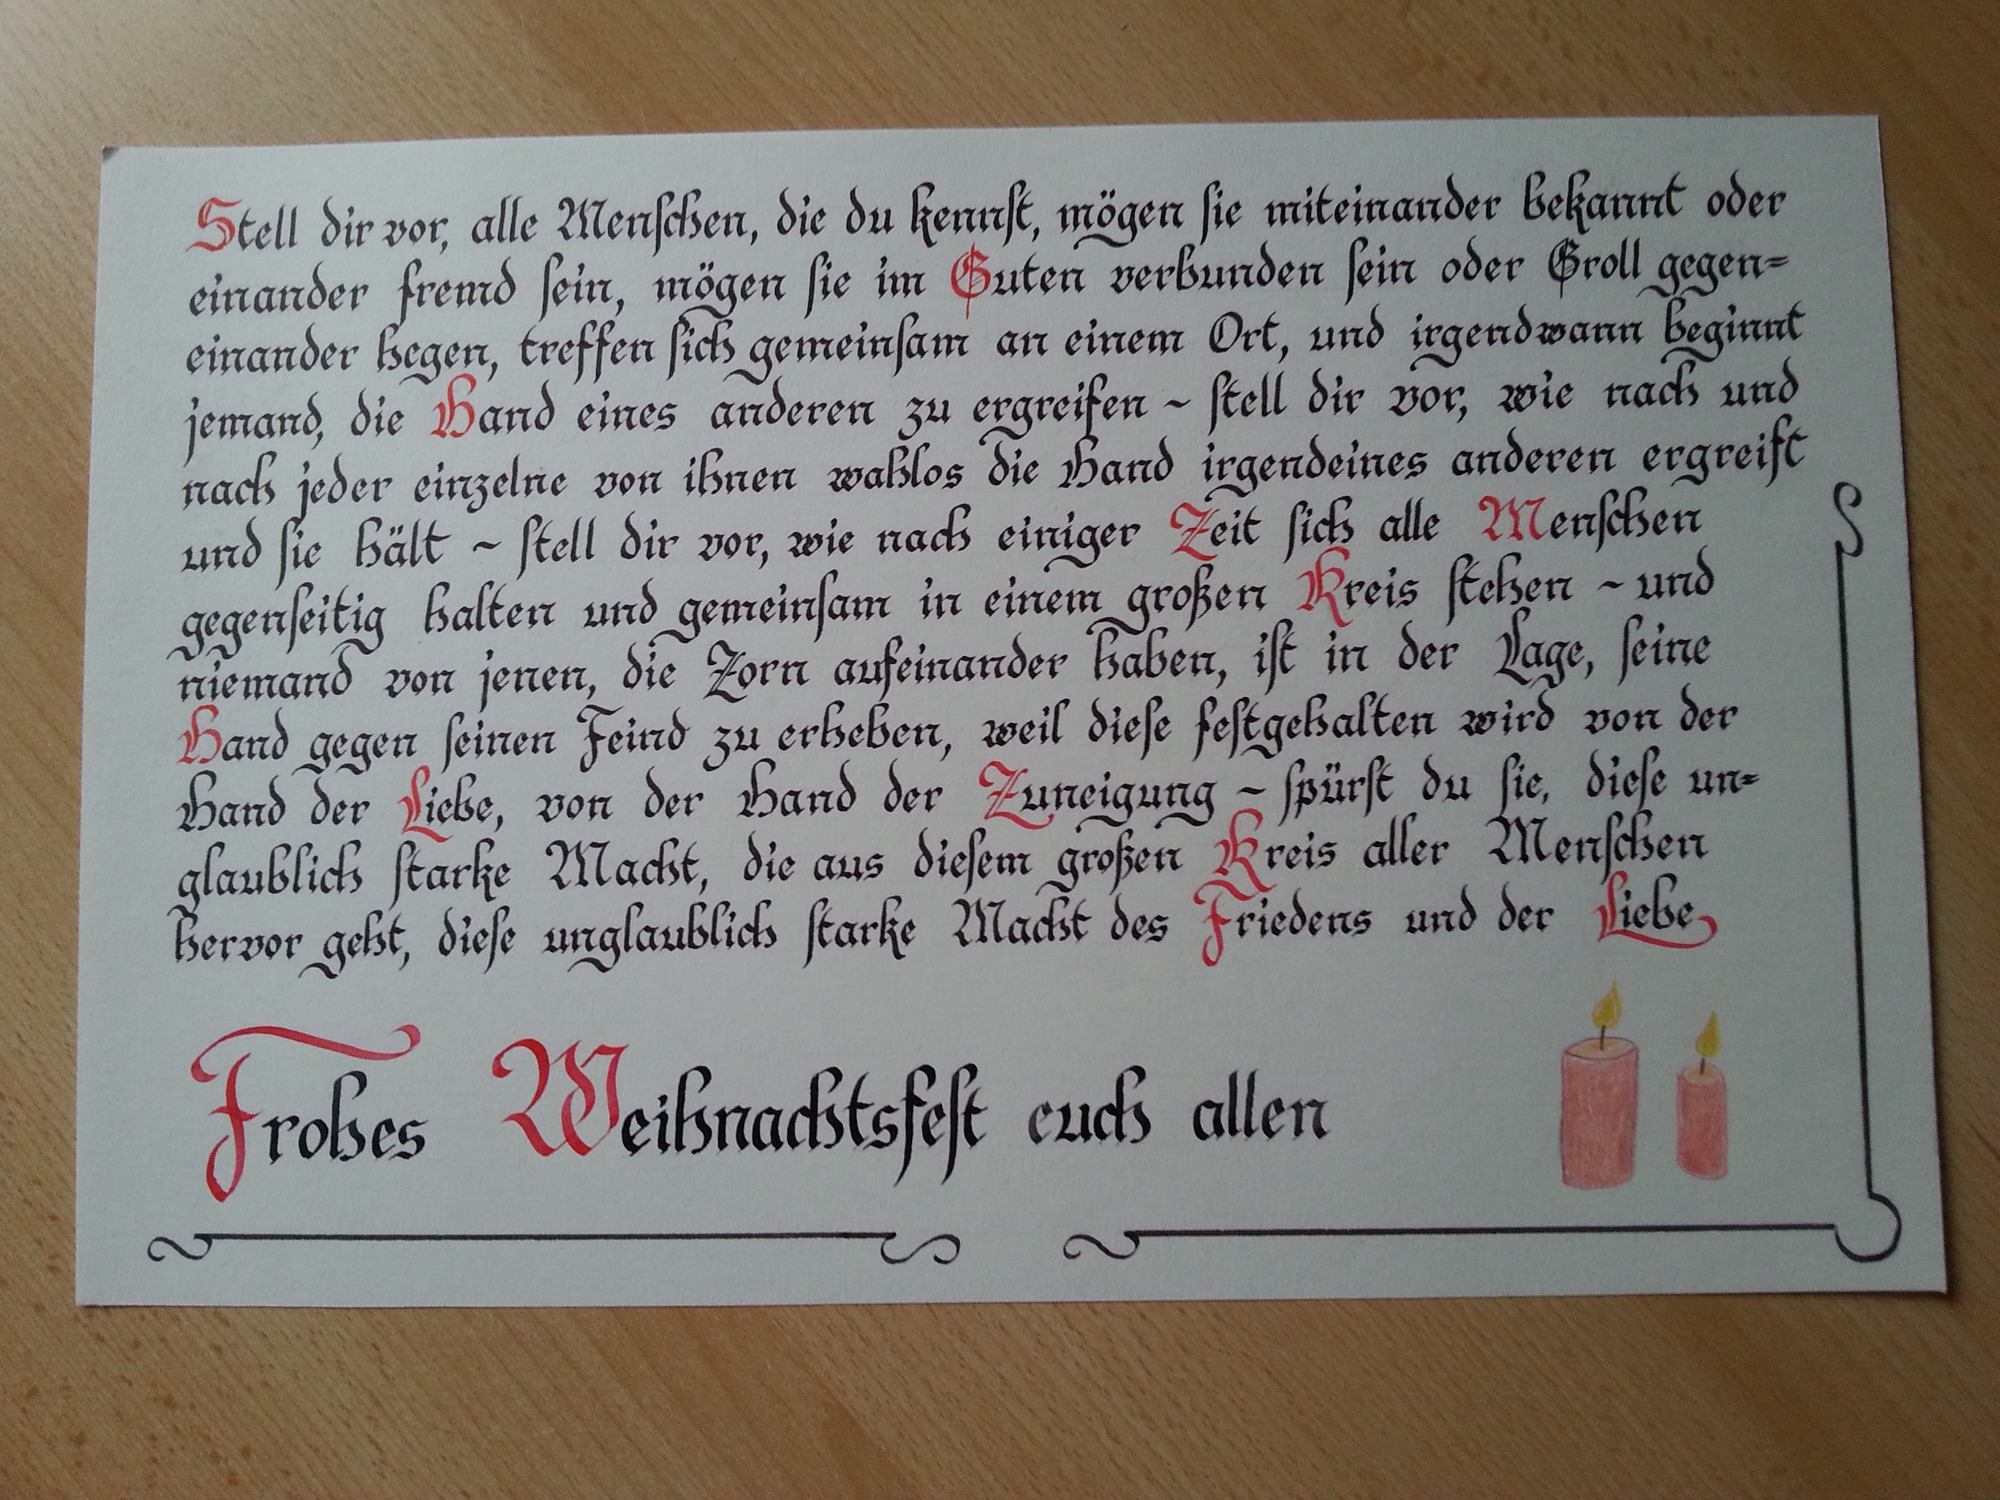 Stell dir vor, alle Menschen, die du kennst, mögen sie miteinander bekannt oder
einander fremd sein, mögen sie im Guten verbunden sein oder Groll gegen=
einander hegen, treffen sich gemeinsam an einem Ort, und irgendwann beginnt
jemand, die Hand eines anderen zu ergreifen ~ stell dir vor, wie nach und
nach jeder einzelne von ihnen wahlos die Hand irgendeines anderen ergreift
und sie hält ~ stell dir vor, wie nach einiger Zeit sich alle Menschen
gegenseitig halten und gemeinsam in einem großen Kreis stehen ~ und
niemand von jenen, die Zorn aufeinander haben, ist in der Lage, seine
Hand gegen seinen Feind zu erheben, weil diese festgehalten wird von der
Hand der Liebe, von der Hand der Zuneigung ~ spürst du sie, diese un=
glaublich starke Macht, die aus diesem großen Kreis aller Menschen
hervor geht, diese unglaublich starke Macht des Friedens und der Liebe
Frohes Weihnachtsfest euch allen